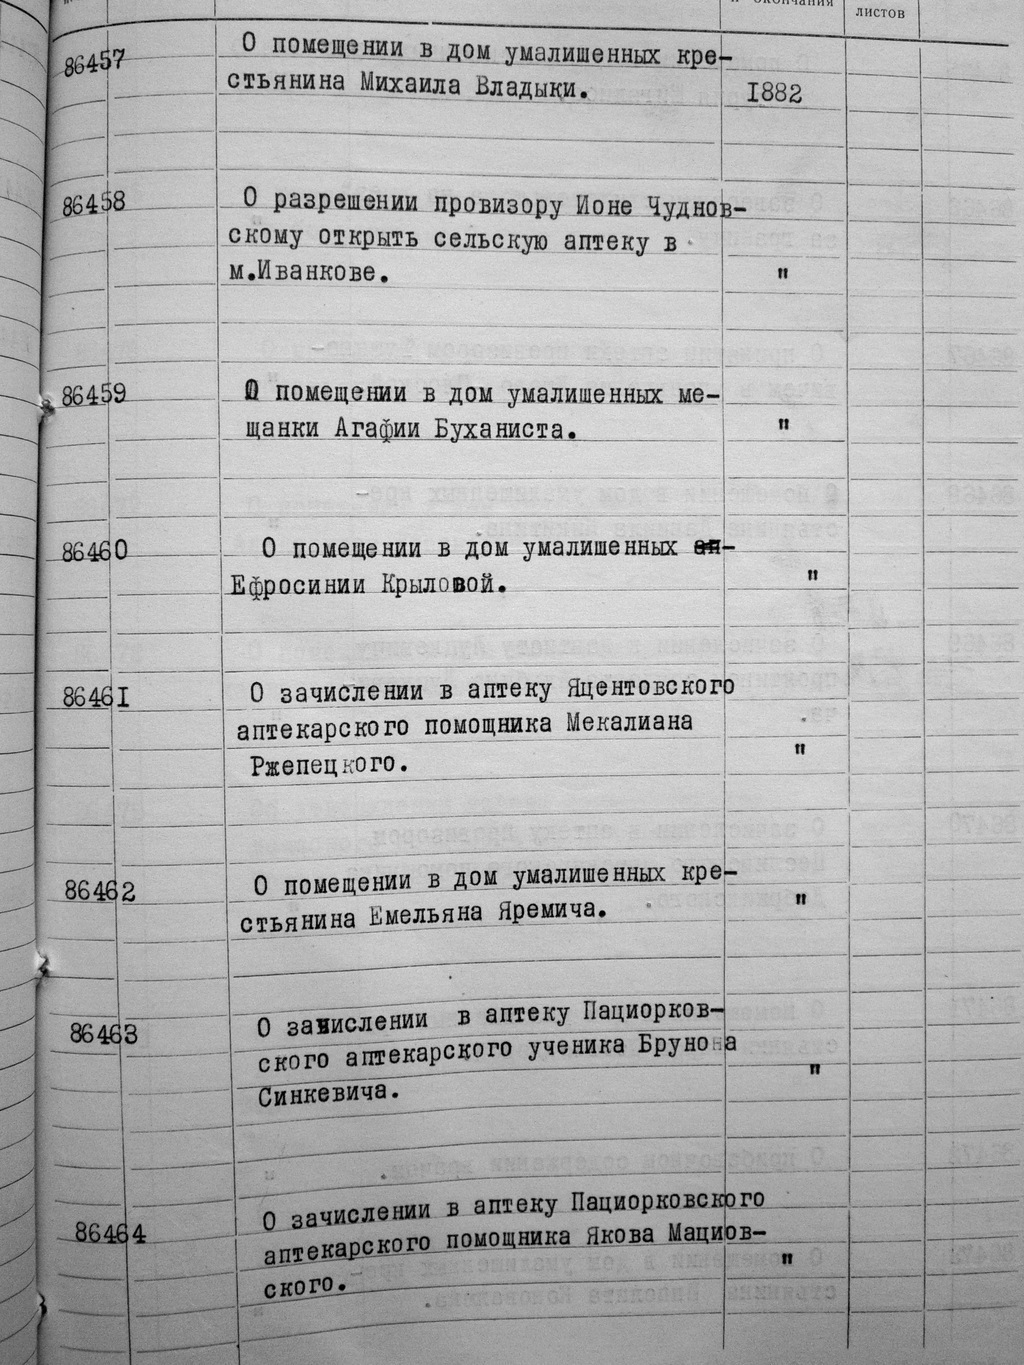 и окончания
листов
86457
О помещении в дом умалишенных кре-
стьянина Михаила Владыки.
1882
86458
О разрешении провизору Ионе Чуднов-
скому открыть сельскую аптеку в
м.Иванкове.
"
86459
О помещении в дом умалишенных ме-
щанки Агафии Буханиста.
"
86460
О помещении в дом умалишенных
Ефросинии Крыловой.
"
86461
О зачислении в аптеку Яцентовского
аптекарского помощника Мекалиана
Ржепецкого.
"
86462
О помещении в дом умалишенных кре-
стьянина Емельяна Яремича.
"
86463
О зачислении в аптеку Пациорков-
ского аптекарского ученика Брунона
Синкевича.
"
86464
О зачислении в аптеку Пациорковского
аптекарского помощника Якова Мациов-
ского.
"